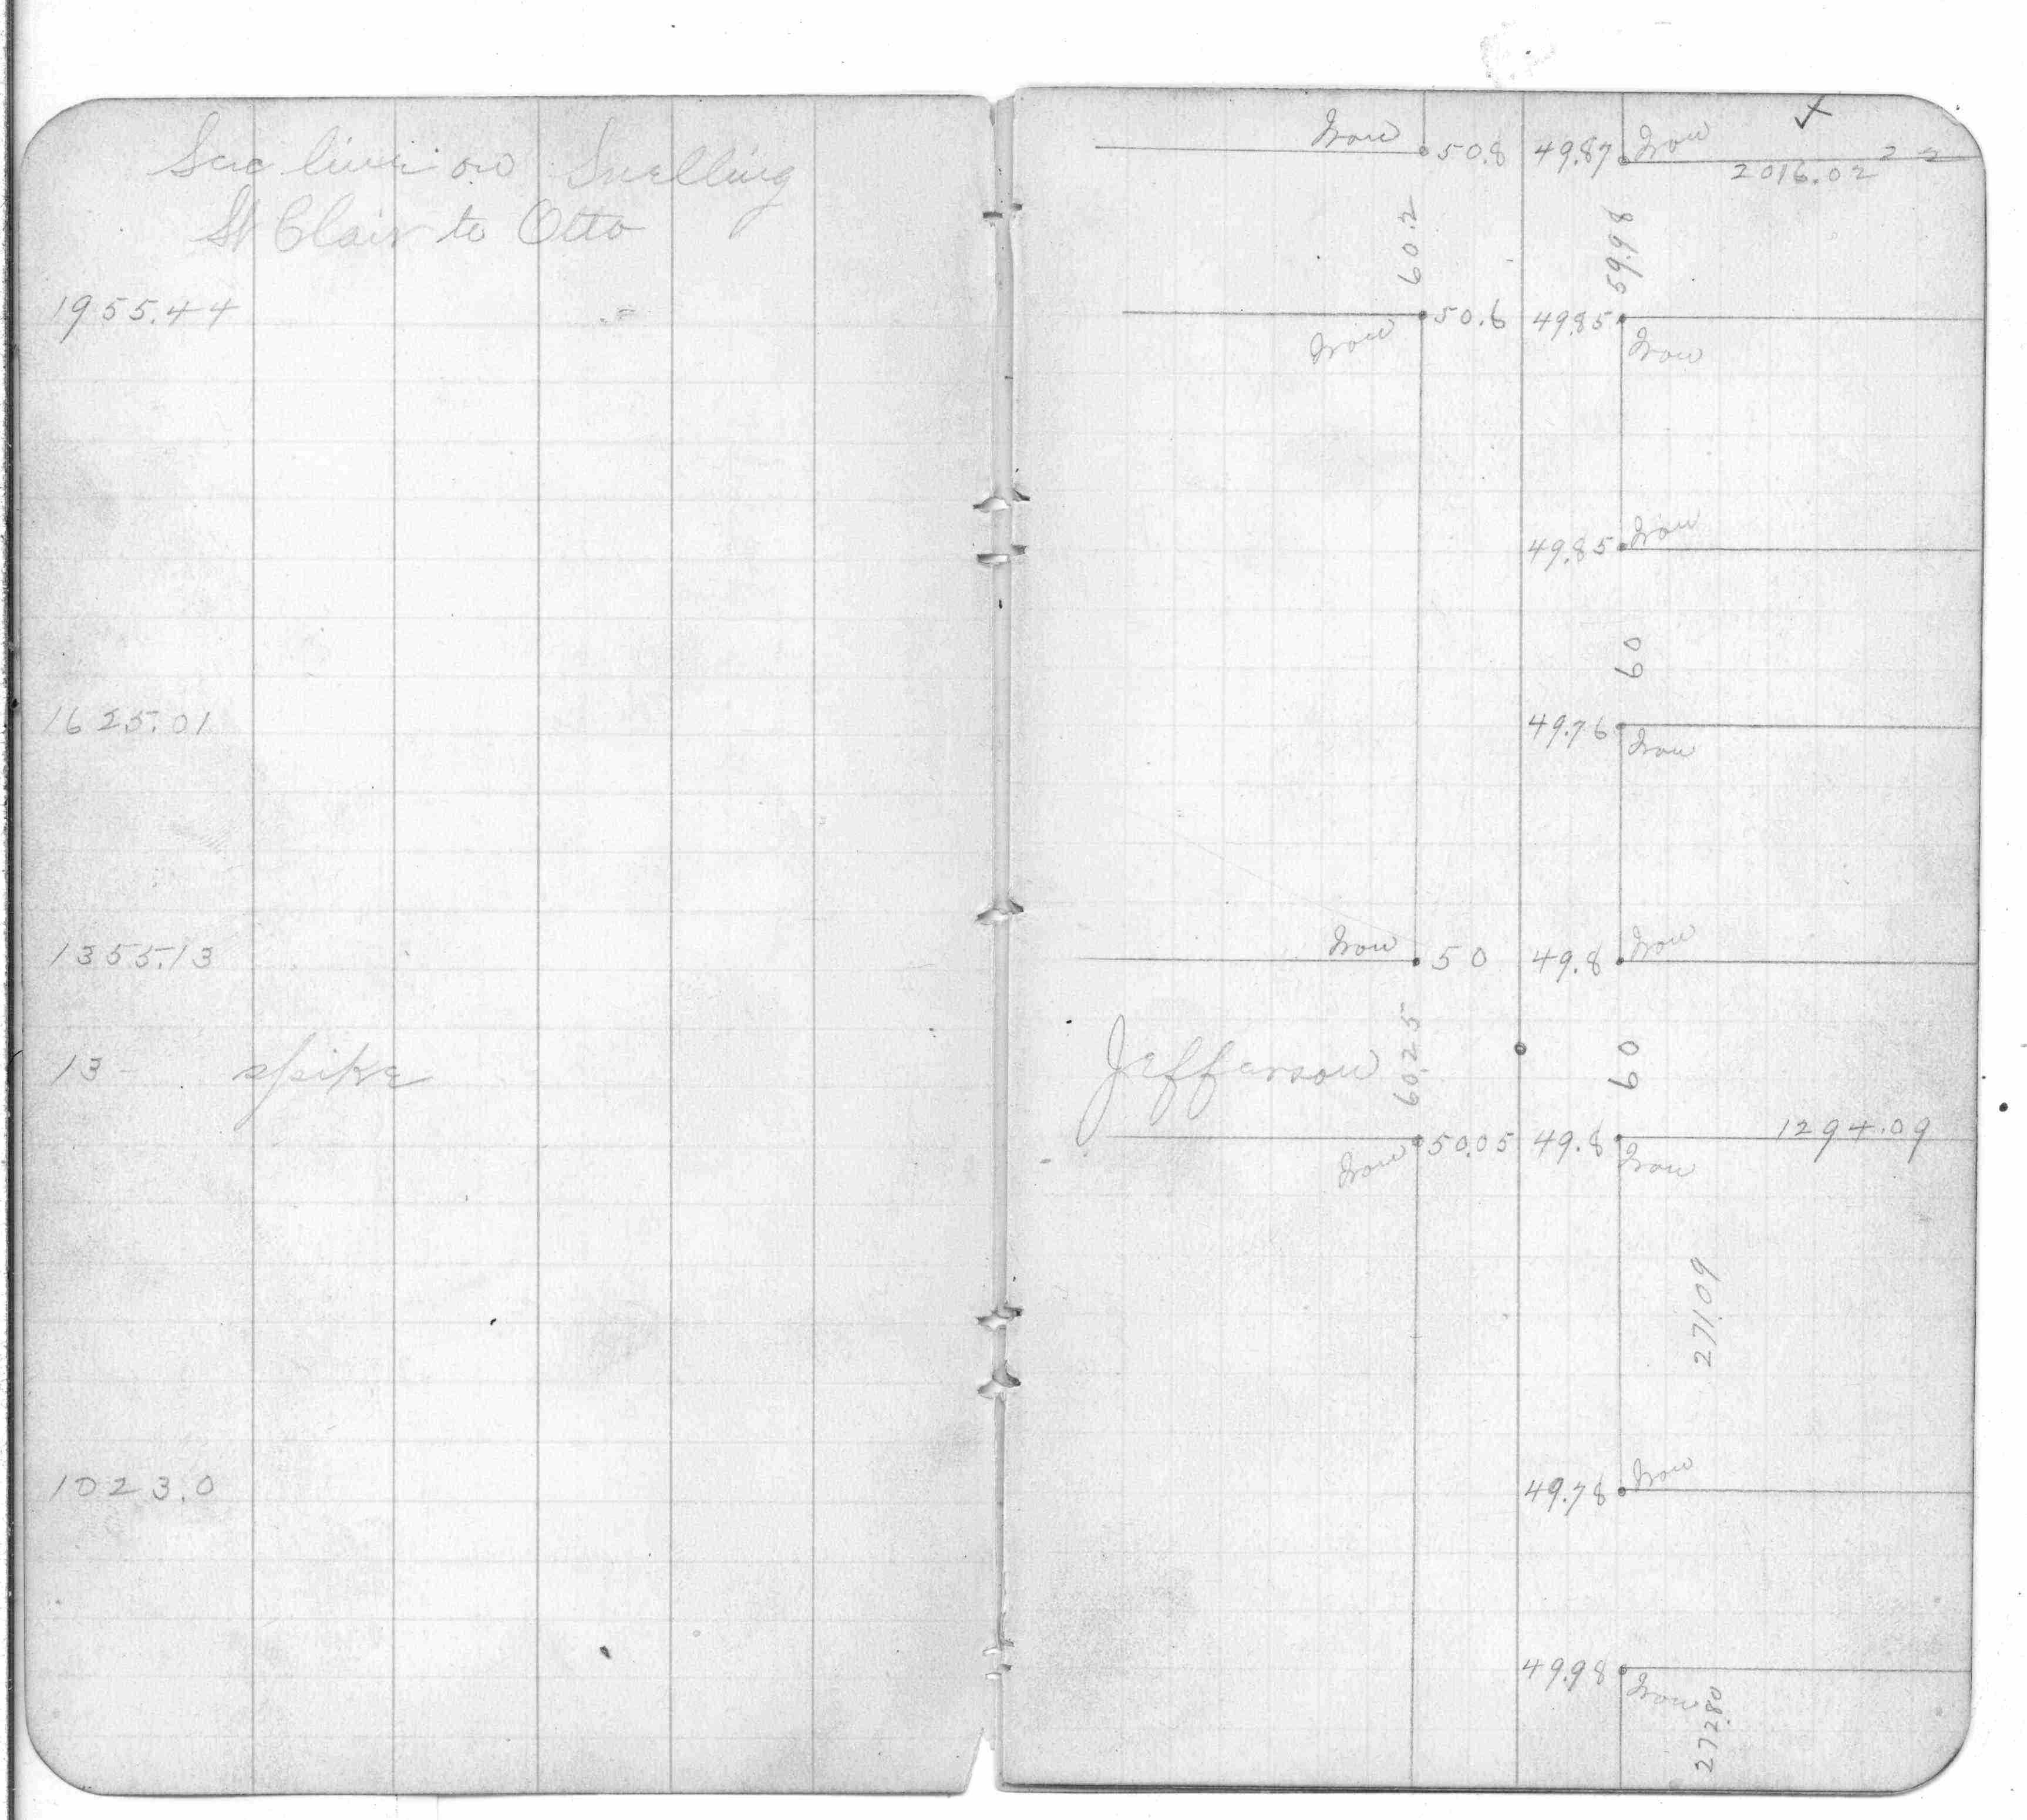 Sec line on Snelling
St Clair to Otto
1955.44
1625.01
1355.13
13 - spike
1023.0
Iron 50.8 49.87 Iron
2016.02
60.2 59.98
50.6 49.85
Iron Iron
49.85 Iron
60
49.76
Iron
Iron 50 49.8 Iron
Jefferson 60.25 60
50.05 49.8 1294.09
Iron Iron
271.09
49.78 Iron
49.98 Iron
272.80